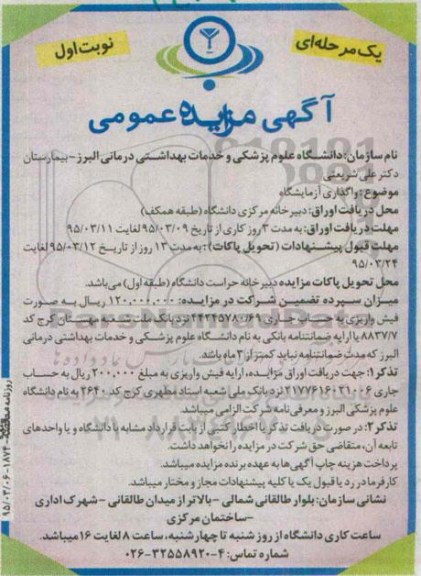 یک مرحله‌ای
نوبت اول
آگهی مزایده عمومی
نام سازمان: دانشگاه علوم پزشکی و خدمات بهداشتی درمانی البرز - بیمارستان
دکتر علی شریعتی
موضوع: واگذاری آزمایشگاه
محل دریافت اوراق: دبیرخانه مرکزی دانشگاه (طبقه همکف)
مهلت دریافت اوراق: به مدت ۳ روز کاری از تاریخ ۹۵/۰۳/۰۹ لغایت ۹۵/۰۳/۱۱
مهلت قبول پیشنهادات (تحویل پاکات): به مدت ۱۳ روز از تاریخ ۹۵/۰۳/۱۲ لغایت
۹۵/۰۳/۲۴
محل تحویل پاکات مزایده دبیرخانه حراست دانشگاه (طبقه اول) می‌باشد.
میزان سپرده تضمین شرکت در مزایده: ۱۲۰,۰۰۰,۰۰۰ ریال به صورت
فیش واریزی به حساب جاری نزد بانک ملت شعبه کرج کد
۸۸۳۷/۷ یا ارایه ضمانتنامه بانکی به نام دانشگاه علوم پزشکی و خدمات بهداشتی درمانی
البرز که مدت ضمانتنامه نباید کمتر از ۳ ماه باشد.
تذکر۱: جهت دریافت اوراق مزایده، ارایه فیش واریزی به مبلغ ۲۰۰,۰۰۰ ریال به حساب
جاری ۲۱۷۷۶۱۶۰۲۱۰۰۶ نزد بانک ملی شعبه استاد مطهری کرج کد ۲۶۴۰ به نام دانشگاه
علوم پزشکی البرز و معرفی نامه شرکت الزامی میباشد
تذکر۲: در صورت دریافت تذکر یا اخطار کتبی از بابت قرارداد مشابه با دانشگاه و یا واحدهای
تابعه آن، متقاضی حق شرکت در مزایده را نخواهد داشت.
پرداخت هزینه چاپ آگهی‌ها به عهده برنده مزایده میباشد.
کارفرما در رد یا قبول یک یا کلیه پیشنهادات مجاز و مختار میباشد.
نشانی سازمان: بلوار طالقانی شمالی - بالاتر از میدان طالقانی - شهرک اداری
- ساختمان مرکزی
ساعت کاری دانشگاه از روز شنبه تا چهارشنبه، ساعت ۸ لغایت ۱۶ میباشد.
شماره تماس: ۴-۳۲۵۵۸۹۲۰-۰۲۶